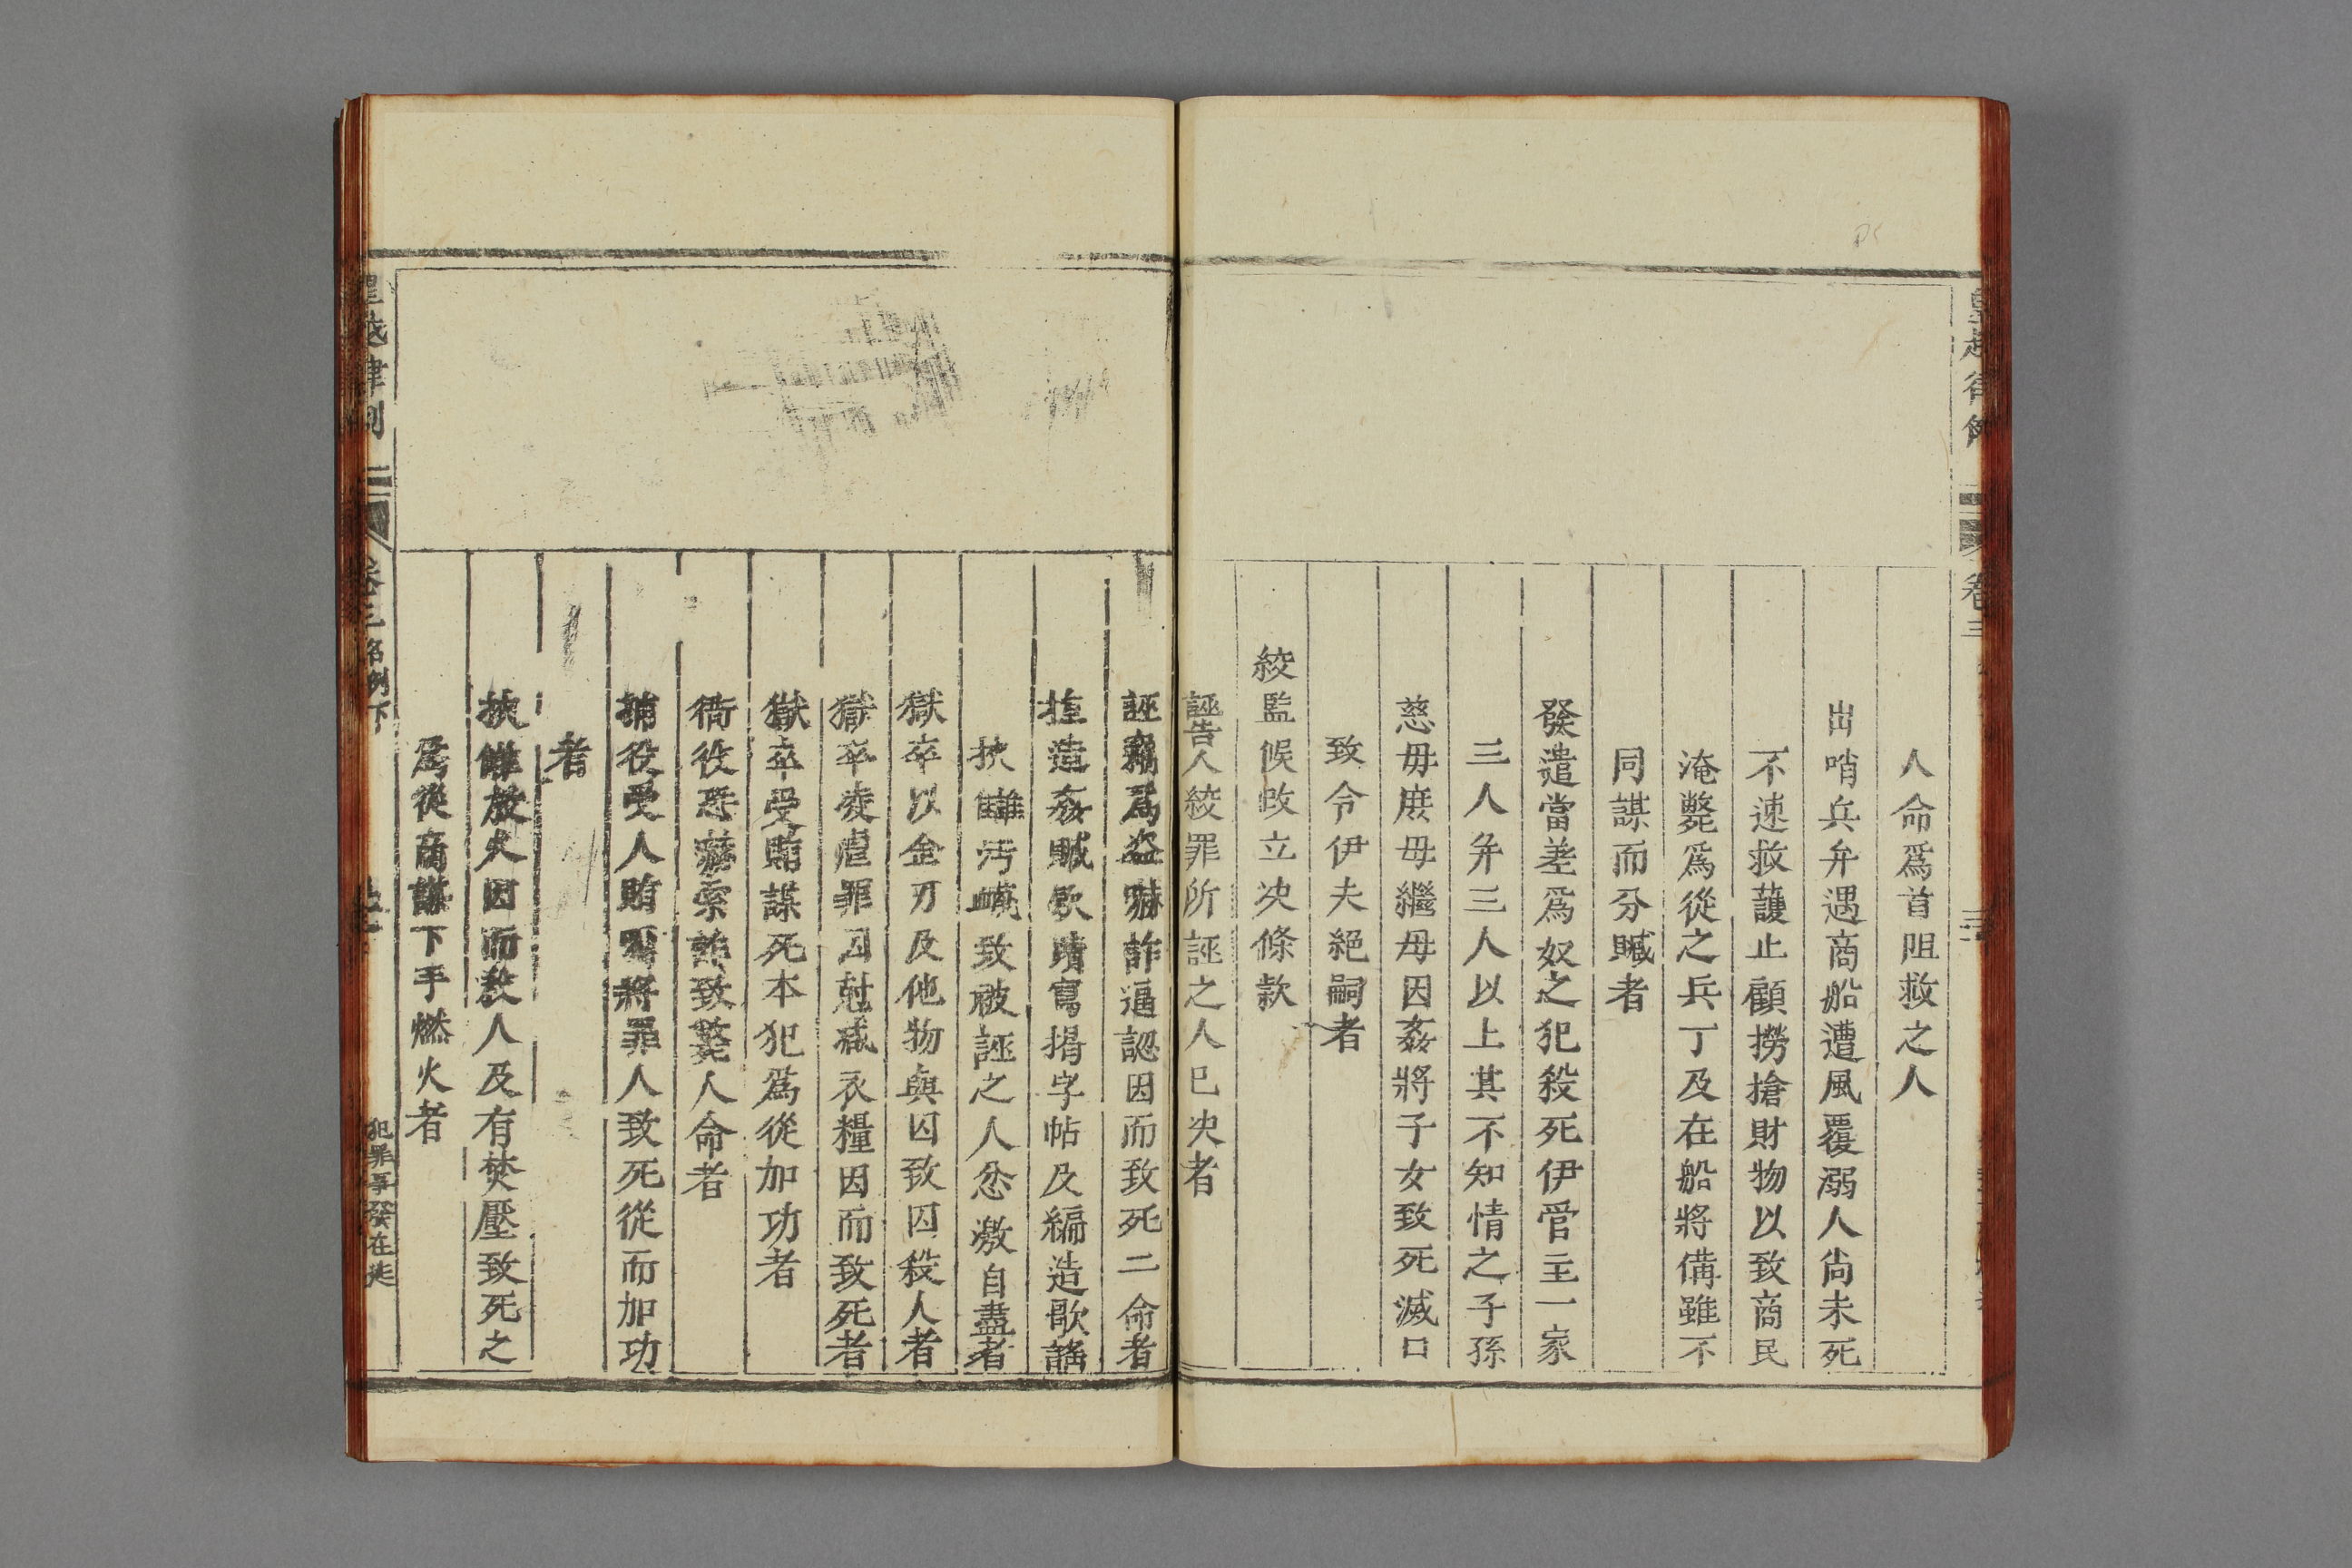 人命爲首阻救之人
出哨兵弁遇商船遭風覆溺人尙未死
不速救護止顧撈搶財物以致商民
淹斃爲從之兵丁及在船將備雖不
同謀而分贓者
發遣當差爲奴之犯殺死伊管主一家
三人弁三人以上其不知情之子孫
慈母庶母繼母因姦將子女致死滅口
致令伊夫絕嗣者
絞監候改立决條款
誣告人絞罪所誣之人已决者
誣竊爲盜嚇詐逼認因而致死二命者
揑造姦贓欵蹟寫揭字帖及編造歌謠
挾讎汚衊致被誣之人忿激自盡者
獄卒以金刃及他物與囚致囚殺人者
獄卒凌虐罪囚尅减衣糧因而致死者
獄卒受賄謀死本犯爲從加功者
衙役恐嚇索詐致斃人命者
捕役受人賄囑將罪人致死從而加功
者
挾讎放火因而殺人及有焚壓致死之
爲從商謀下手燃火者
皇越律例
卷三名例下
犯罪事發在逃